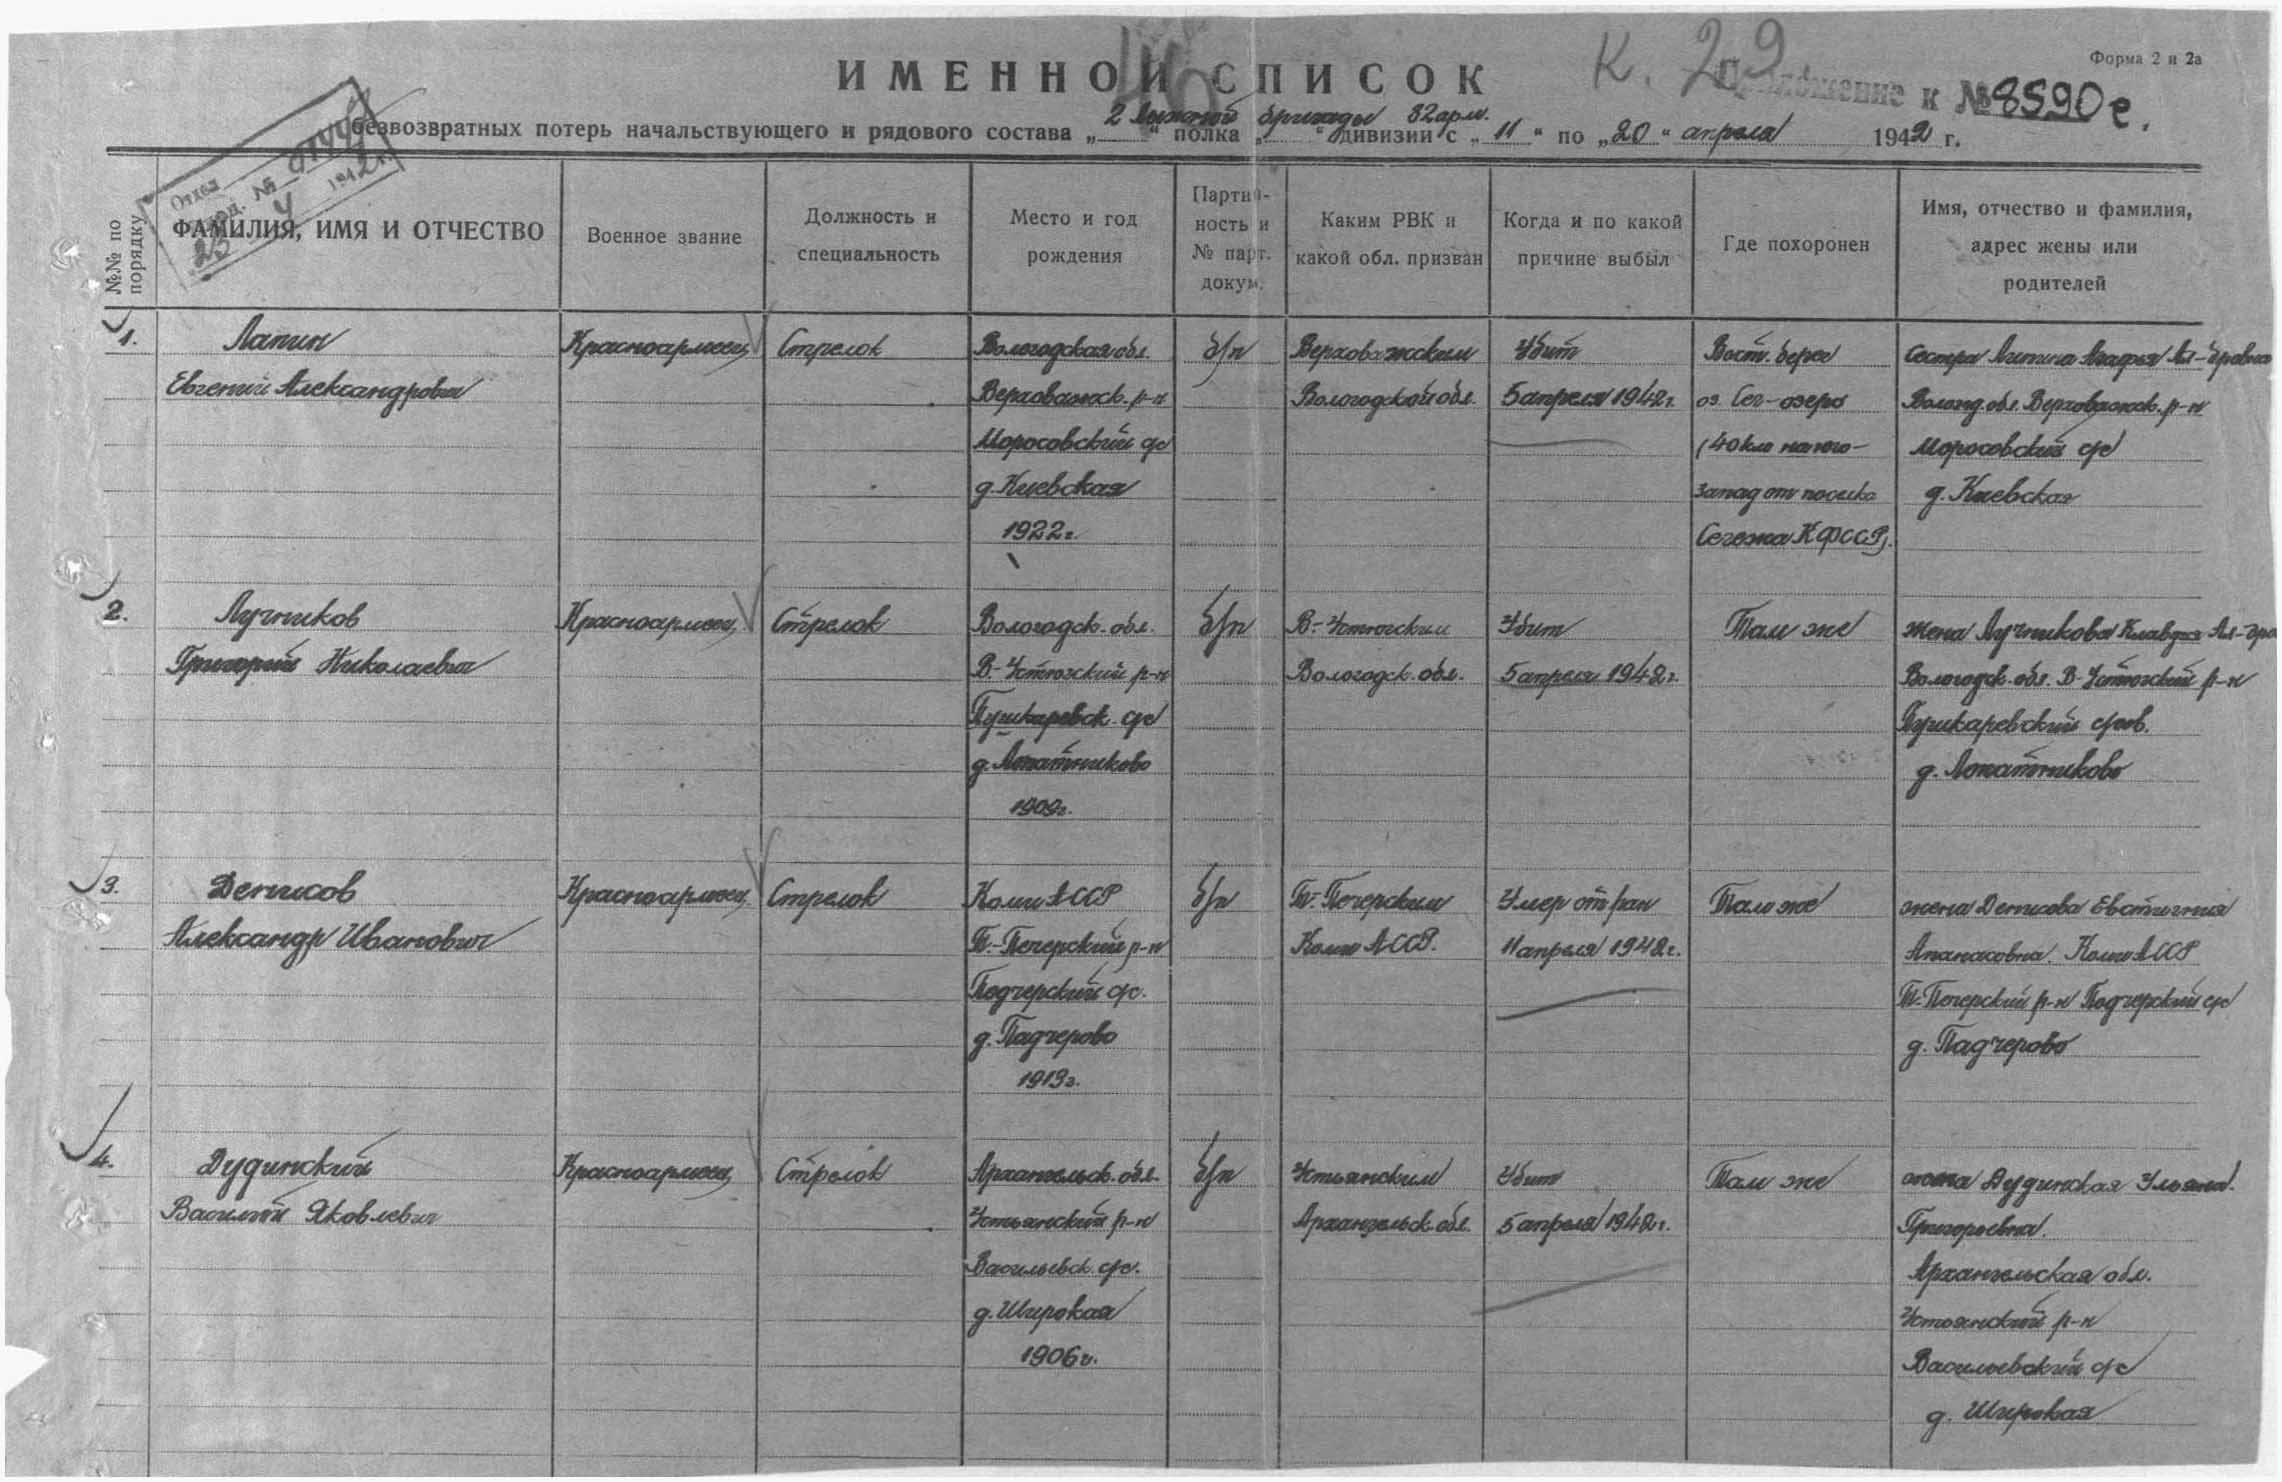 Форма 2 и 2а
К. 29
46
ИМЕННОЙ СПИСОК
Приложение к № 8590с.
2 лыжной бригады 32 арм.
безвозвратных потерь начальствующего и рядового состава „ “ полка „ “ дивизии с „11“ по „20“ апреля 1942 г.
Отдел
Вход. №
25 4 1942 г.
№№ по порядку
ФАМИЛИЯ, ИМЯ И ОТЧЕСТВО
Военное звание
Должность и
специальность
Место и год
рождения
Партий-
ность и
№ парт.
докум.
Каким РВК и
какой обл. призван
Когда и по какой
причине выбыл
Где похоронен
Имя, отчество и фамилия,
адрес жены или
родителей
1.
Лапин
Евгений Александрович
Красноармеец
Стрелок
Вологодская обл.
Верховажск. р-н
Моросовский с/с
д. Киевская
1922 г.
б/п
Верховажским
Вологодской обл.
Убит
5 апреля 1942 г.
Вост. берег
оз. Сег-озеро
(40 клм на юго-
запад от поселка
Сегежа КФССР).
Сестра Лапина Агафья Ал-дровна
Вологод. обл. Верховажск. р-н
Моросовский с/с
д. Киевская
2.
Лучников
Григорий Николаевич
Красноармеец
Стрелок
Вологодск. обл.
В-Устюгский р-н
Пушкаревск. с/с
д. Лопатниково
1909 г.
б/п
В-Устюгским
Вологодск. обл.
Убит
5 апреля 1942 г.
Там же
жена Лучникова Клавдия Ал-дро
Вологодск. обл. В-Устюгский р-н
Пушкаревский с/сов.
д. Лопатниково
3.
Денисов
Александр Иванович
Красноармеец
Стрелок
Коми АССР
Т.-Печерский р-н
Подчерский с/с.
д. Падчерово
1913 г.
б/п
Т.-Печерским
Коми АССР.
Умер от ран
11 апреля 1942 г.
Там же
жена Денисова Евстигния
Апанасовна. Коми АССР
Т.-Печерский р-н Подчерский с/с
д. Падчерово
4.
Дудинский
Василий Яковлевич
Красноармеец
Стрелок
Архангельск. обл.
Устьянский р-н
Васильевск. с/с.
д. Широкая
1906 г.
б/п
Устьянским
Архангельск. обл.
Убит
5 апреля 1942 г.
Там же
жена Дудинская Ульяна
Григорьевна.
Архангельская обл.
Устьянский р-н
Васильевский с/с
д. Широкая